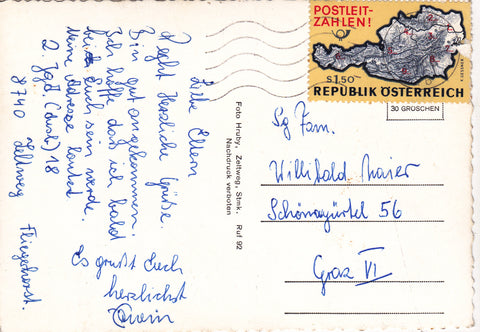 Liebe Eltern
Recht herzliche Grüße.
Bin gut angekommen.
Ich hoffe daß ich bald
bei euch sein werde.
Meine Adresse lautet
2. Jgd. (ausb) 18
8740 Zeltweg Fliegerhorst.
Es grüßt Euch
herzlichst
Foto Hruby, Zeltweg, Stmk. Ruf 92
Nachdruck verboten
POSTLEIT-
ZAHLEN!
S 1,50
REPUBLIK ÖSTERREICH
30 GROSCHEN
Sg Fam.
Willibald Maier
Schönaugürtel 56
Graz VI